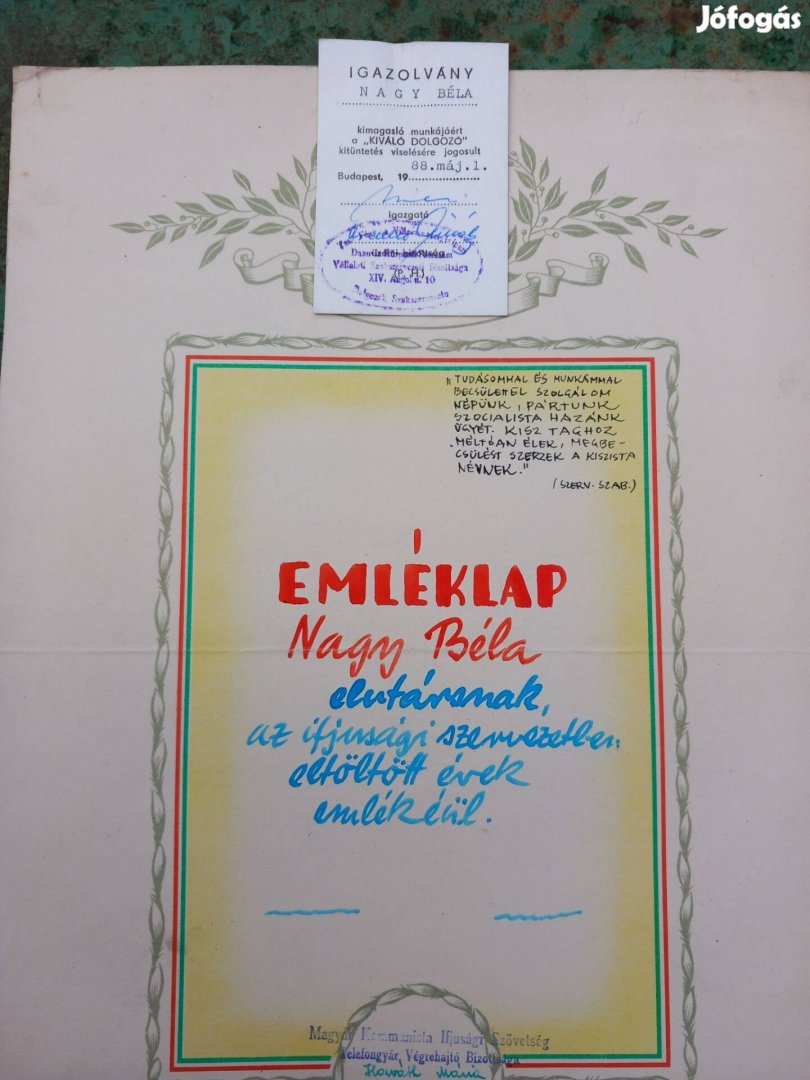 Jófogás
IGAZOLVÁNY
NAGY BÉLA
kimagasló munkájáért
a „KIVÁLÓ DOLGOZÓ"
kitüntetés viselésére jogosult
88.máj.1.
Budapest, 19
Igazgató
(P. H.)
XIV. u. 10
„TUDÁSOMMAL ÉS MUNKÁMMAL
BECSÜLETTEL SZOLGÁLOM
NÉPÜNK, PÁRTUNK
SZOCIALISTA HAZÁNK
ÜGYÉT. KISZ TAGHOZ
MÉLTÓAN ÉLEK, MEGBE-
CSÜLÉST SZERZEK A KISZISTA
NÉVNEK."
(SZERV. SZAB.)
EMLÉKLAP
Nagy Béla
elvtársnak,
az ifjusági szervezetben
eltöltött évek
emlékéül.
Magyar Kommunista Ifjusági Szövetség
Telefongyár Végrehajtó Bizottsága
Horváth Mária